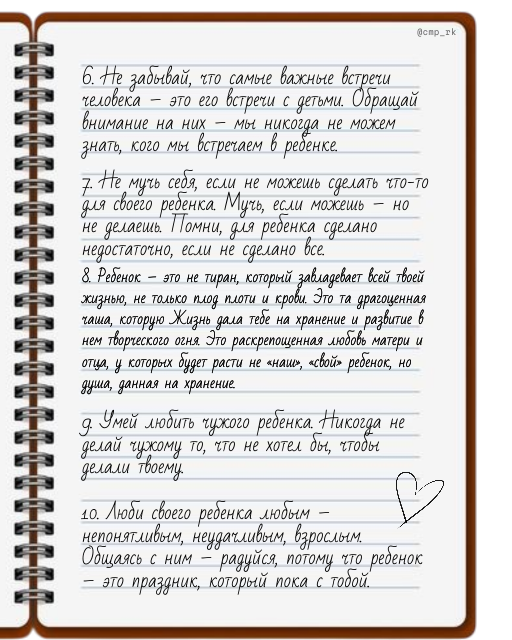 @cmp_rk
6. Не забывай, что самые важные встречи
человека – это его встречи с детьми. Обращай
внимание на них – мы никогда не можем
знать, кого мы встречаем в ребенке.
7. Не мучь себя, если не можешь сделать что-то
для своего ребенка. Мучь, если можешь – но
не делаешь. Помни, для ребенка сделано
недостаточно, если не сделано все.
8. Ребенок – это не тиран, который завладевает всей твоей
жизнью, не только плод плоти и крови. Это та драгоценная
чаша, которую Жизнь дала тебе на хранение и развитие в
нем творческого огня. Это раскрепощенная любовь матери и
отца, у которых будет расти не «наш», «свой» ребенок, но
душа, данная на хранение.
9. Умей любить чужого ребенка. Никогда не
делай чужому то, что не хотел бы, чтобы
делали твоему.
10. Люби своего ребенка любым –
непонятливым, неудачливым, взрослым.
Общаясь с ним – радуйся, потому что ребенок
– это праздник, который пока с тобой.